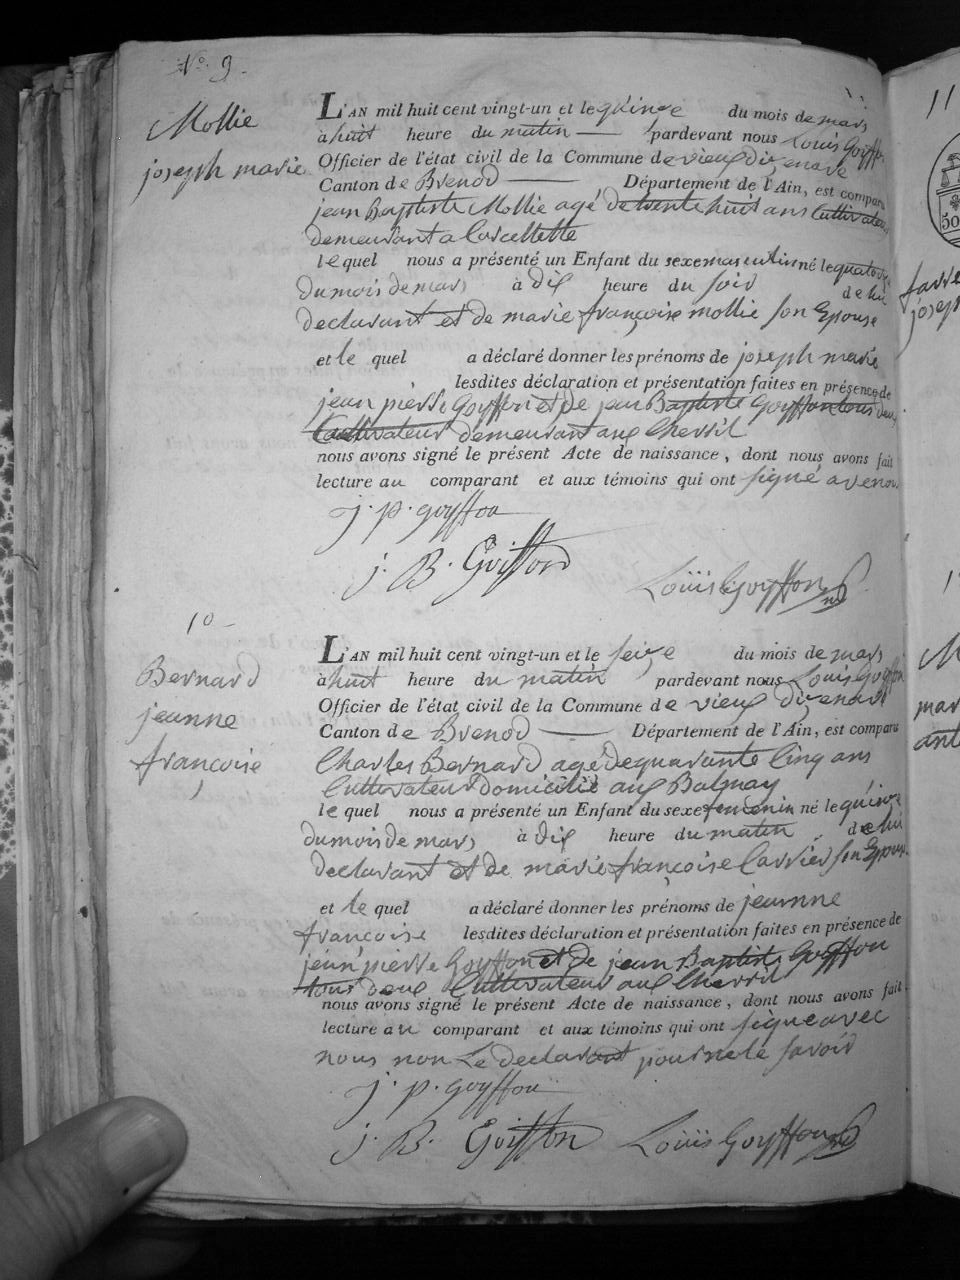 No. 9.
Mollie
joseph marie
L'AN mil huit cent vingt-un et le quinze du mois de mars
à huit heure du matin pardevant nous Louis Goyffon
Officier de l'état civil de la Commune de vieux d'izenave
Canton de Brenod Département de l'Ain, est comparu
jean Baptiste Mollie agé de trente huit ans Cultivateur
demeurant a
le quel nous a présenté un Enfant du sexe masculin né le quatorze
du mois de mars à dix heure du soir de lui
declarant et de marie françoise mollie son Epouse
et le quel a déclaré donner les prénoms de joseph marie
lesdites déclaration et présentation faites en présence de
jean pierre Goyffon et de jean Baptiste Goyffon tous deux
Cultivateur demeurant aux
nous avons signé le présent Acte de naissance, dont nous avons fait
lecture au comparant et aux témoins qui ont signé avenous
j. p. goyffon
j. B. Goiffon
Louis Goyffon
10
Bernard
jeanne
francoise
L'AN mil huit cent vingt-un et le seize du mois de mars
à huit heure du matin pardevant nous Louis Goyffon
Officier de l'état civil de la Commune de vieux dizenave
Canton de Brenod Département de l'Ain, est comparu
Charles Bernard agé de quarante Cinq ans
Cultivateur domicilié aux Balmay
le quel nous a présenté un Enfant du sexe femenin né le quinze
du mois de mars à dix heure du matin de lui
declarant et de marie françoise Carrier son Epouse
et le quel a déclaré donner les prénoms de jeanne
francoise lesdites déclaration et présentation faites en présence de
jean pierre Goyffon et de jean Baptiste Goyffon
tous deux Cultivateur aux
nous avons signé le présent Acte de naissance, dont nous avons fait
lecture au comparant et aux témoins qui ont signé avec
nous non Le declarant pour ne le savoir
j. p. goyffon
j. B. Goiffon Louis Goyffon
11
50